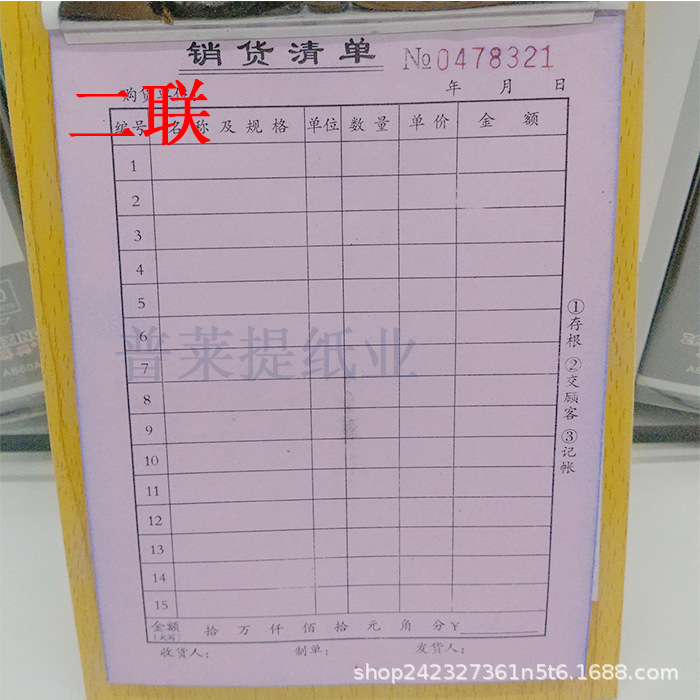 销货清单 №0478321
年 月 日
二联
编号 名称及规格 单位 数量 单价 金额
1
2
3
4
5
6
7
8
9
10
11
12
13
14
15
普莱提纸业
①存根 ②交顾客 ③记帐
金额(大写) 拾 万 仟 佰 拾 元 角 分 ¥
收货人: 制单: 发货人:
shop242327361n5t6.1688.com